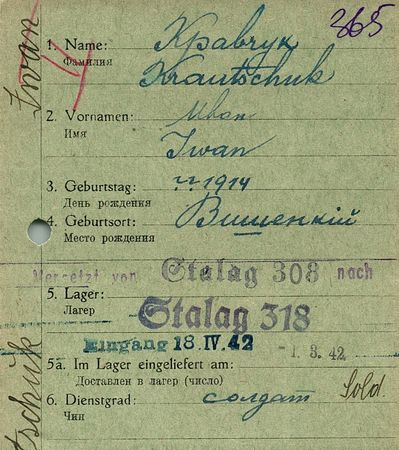 365
1. Name: Кравчук
Фамилия
Krautschuk
2. Vornamen: Иван
Имя
Iwan
3. Geburtstag: ?.?.1914
День рождения
4. Geburtsort: Вишенкій
Место рождения
Versetzt von Stalag 308 nach
5. Lager: Stalag 318
Лагерь
Eingang 18. IV. 42
-1. 3. 42
5a. Im Lager eingeliefert am:
Доставлен в лагерь (число)
6. Dienstgrad: солдат Sold.
Чин
Iwan
tschuk